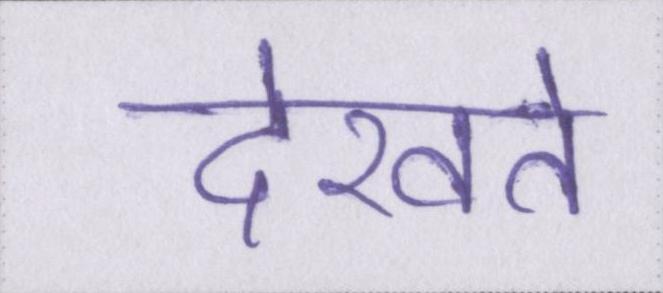 देखते